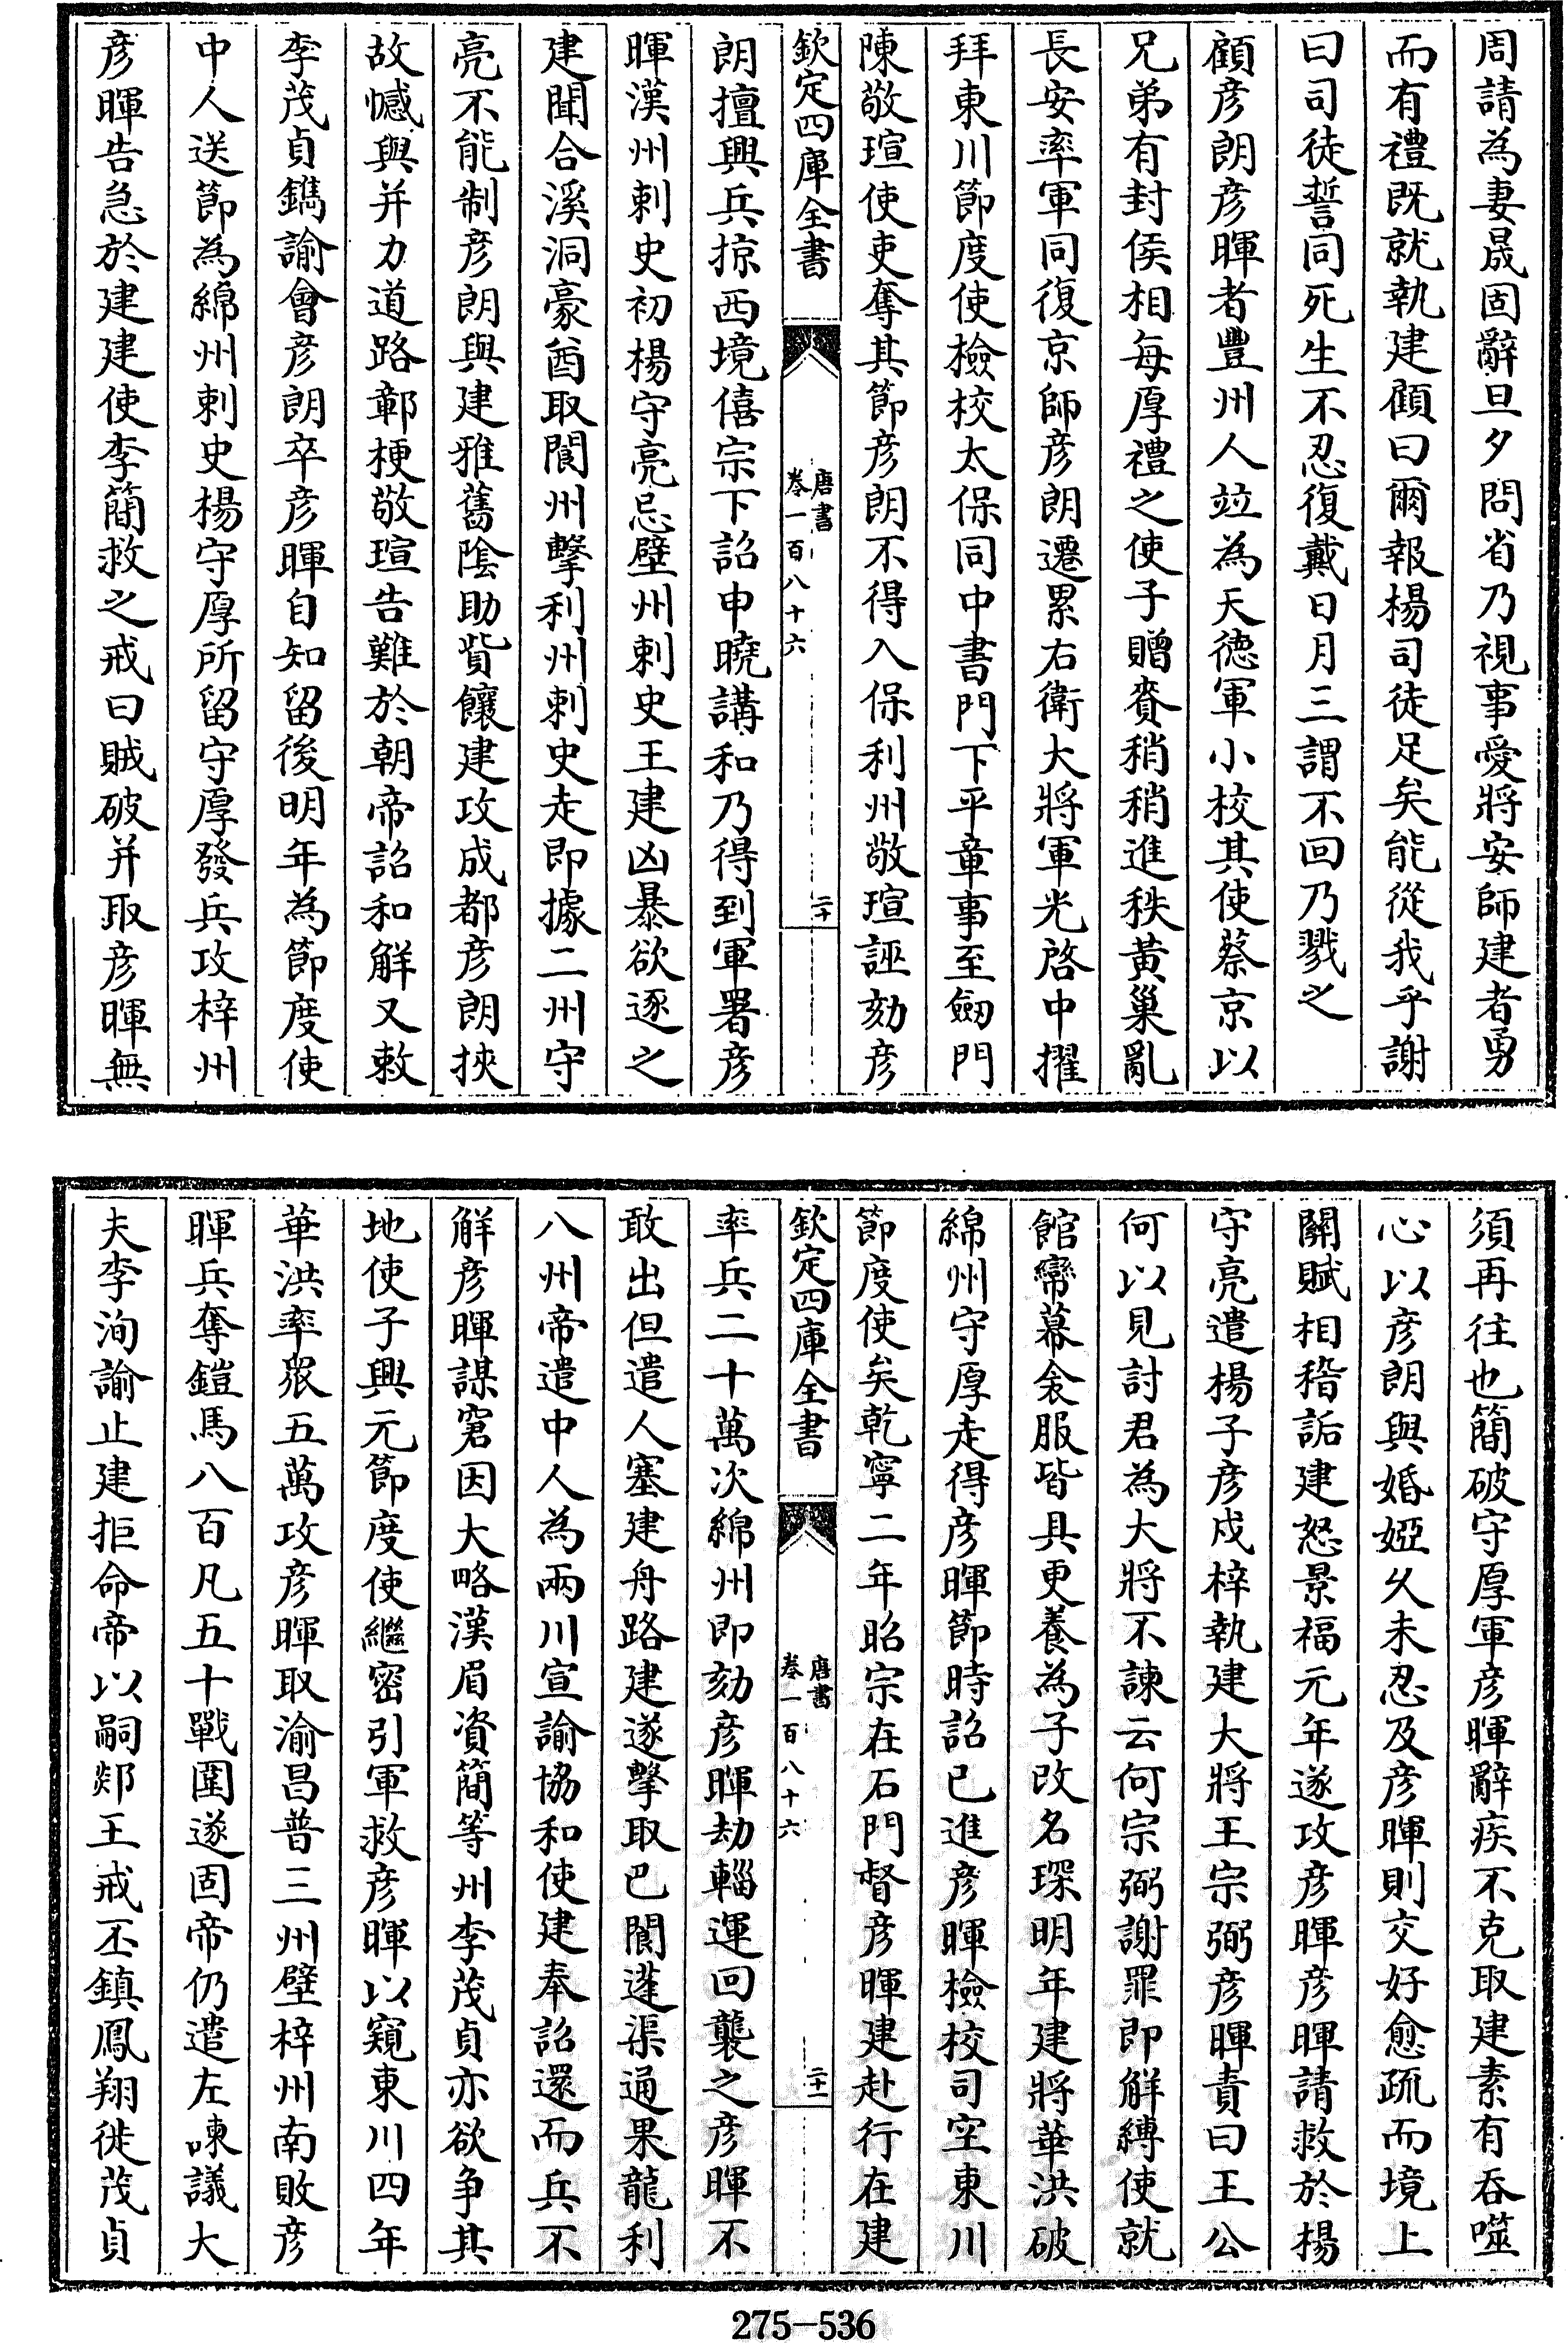 周請為妻晟固辭旦夕問省乃視事愛將安師建者勇
而有禮既就執建顧曰爾報楊司徒足矣能從我乎謝
曰司徒誓同死生不忍復戴日月三謂不回乃戮之
顧彦朗彦暉者豐州人竝為天德軍小校其使蔡京以
兄弟有封侯相每厚禮之使子贈賚稍稍進秩黃巢亂
長安率軍同復京師彦朗遷累右衛大將軍光啓中擢
拜東川節度使檢校太保同中書門下平章事至劔門
陳敬瑄使吏奪其節彦朗不得入保利州敬瑄誣劾彦
欽定四庫全書
唐書
卷一百八十六
二十
朗擅興兵掠西境僖宗下詔申曉講和乃得到軍署彦
暉漢州刺史初楊守亮忌壁州刺史王建凶暴欲逐之
建聞合溪洞豪酋取閬州擊利州刺史走即據二州守
亮不能制彦朗與建雅舊陰助貲饟建攻成都彦朗挾
故憾與并力道路鄣梗敬瑄告難於朝帝詔和解又敕
李茂貞鐫諭會彦朗卒彦暉自知留後明年為節度使
中人送節為綿州刺史楊守厚所留守厚發兵攻梓州
彦暉告急於建建使李簡救之戒曰賊破并取彦暉無
須再往也簡破守厚軍彦暉辭疾不克取建素有吞噬
心以彦朗與婚婭久未忍及彦暉則交好愈疏而境上
關賦相稽詬建怒景福元年遂攻彦暉彦暉請救於楊
守亮遣楊子彦戍梓執建大將王宗弼彦暉責曰王公
何以見討君為大將不諫云何宗弼謝罪即解縛使就
館帟幕衾服皆具更養為子改名琛明年建將華洪破
綿州守厚走得彦暉節時詔已進彦暉檢校司空東川
節度使矣乾寧二年昭宗在石門督彦暉建赴行在建
欽定四庫全書
唐書
卷一百八十六
二十一
率兵二十萬次綿州即劾彦暉劫輜運回襲之彦暉不
敢出但遣人塞建舟路建遂擊取巴閬蓬渠通果龍利
八州帝遣中人為兩川宣諭協和使建奉詔還而兵不
解彦暉謀窘因大略漢眉資簡等州李茂貞亦欲爭其
地使子興元節度使繼密引軍救彦暉以窺東川四年
華洪率眾五萬攻彦暉取渝昌普三州壁梓州南敗彦
暉兵奪鎧馬八百凡五十戰圍遂固帝仍遣左諫議大
夫李洵諭止建拒命帝以嗣郯王戒丕鎮鳳翔徙茂貞
275—536